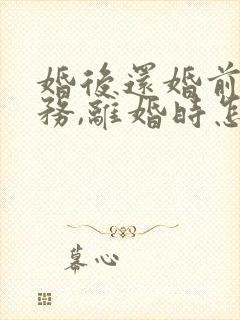 婚後還婚前
務,離婚時怎
幕心